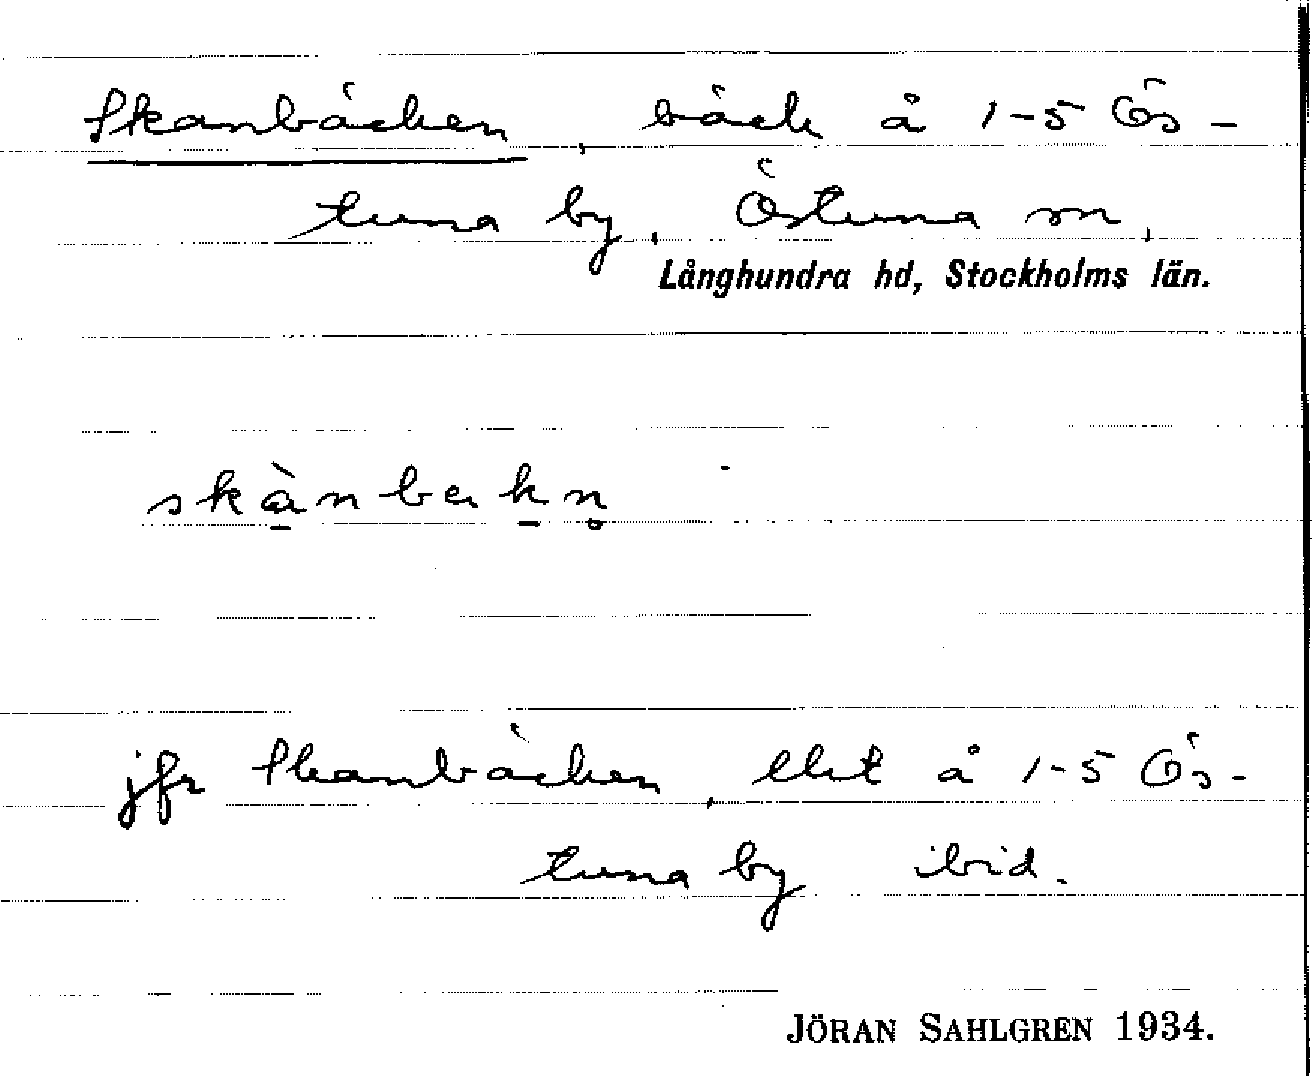 Skanbäcken, bäck å 1-5 Ös-
tuna by, Östuna sn,
Långhundra hd, Stockholms län.
skànbekn̥
jfr Skanbäcken, eket å 1-5 Ös-
tuna by ibid.
JÖRAN SAHLGREN 1934.